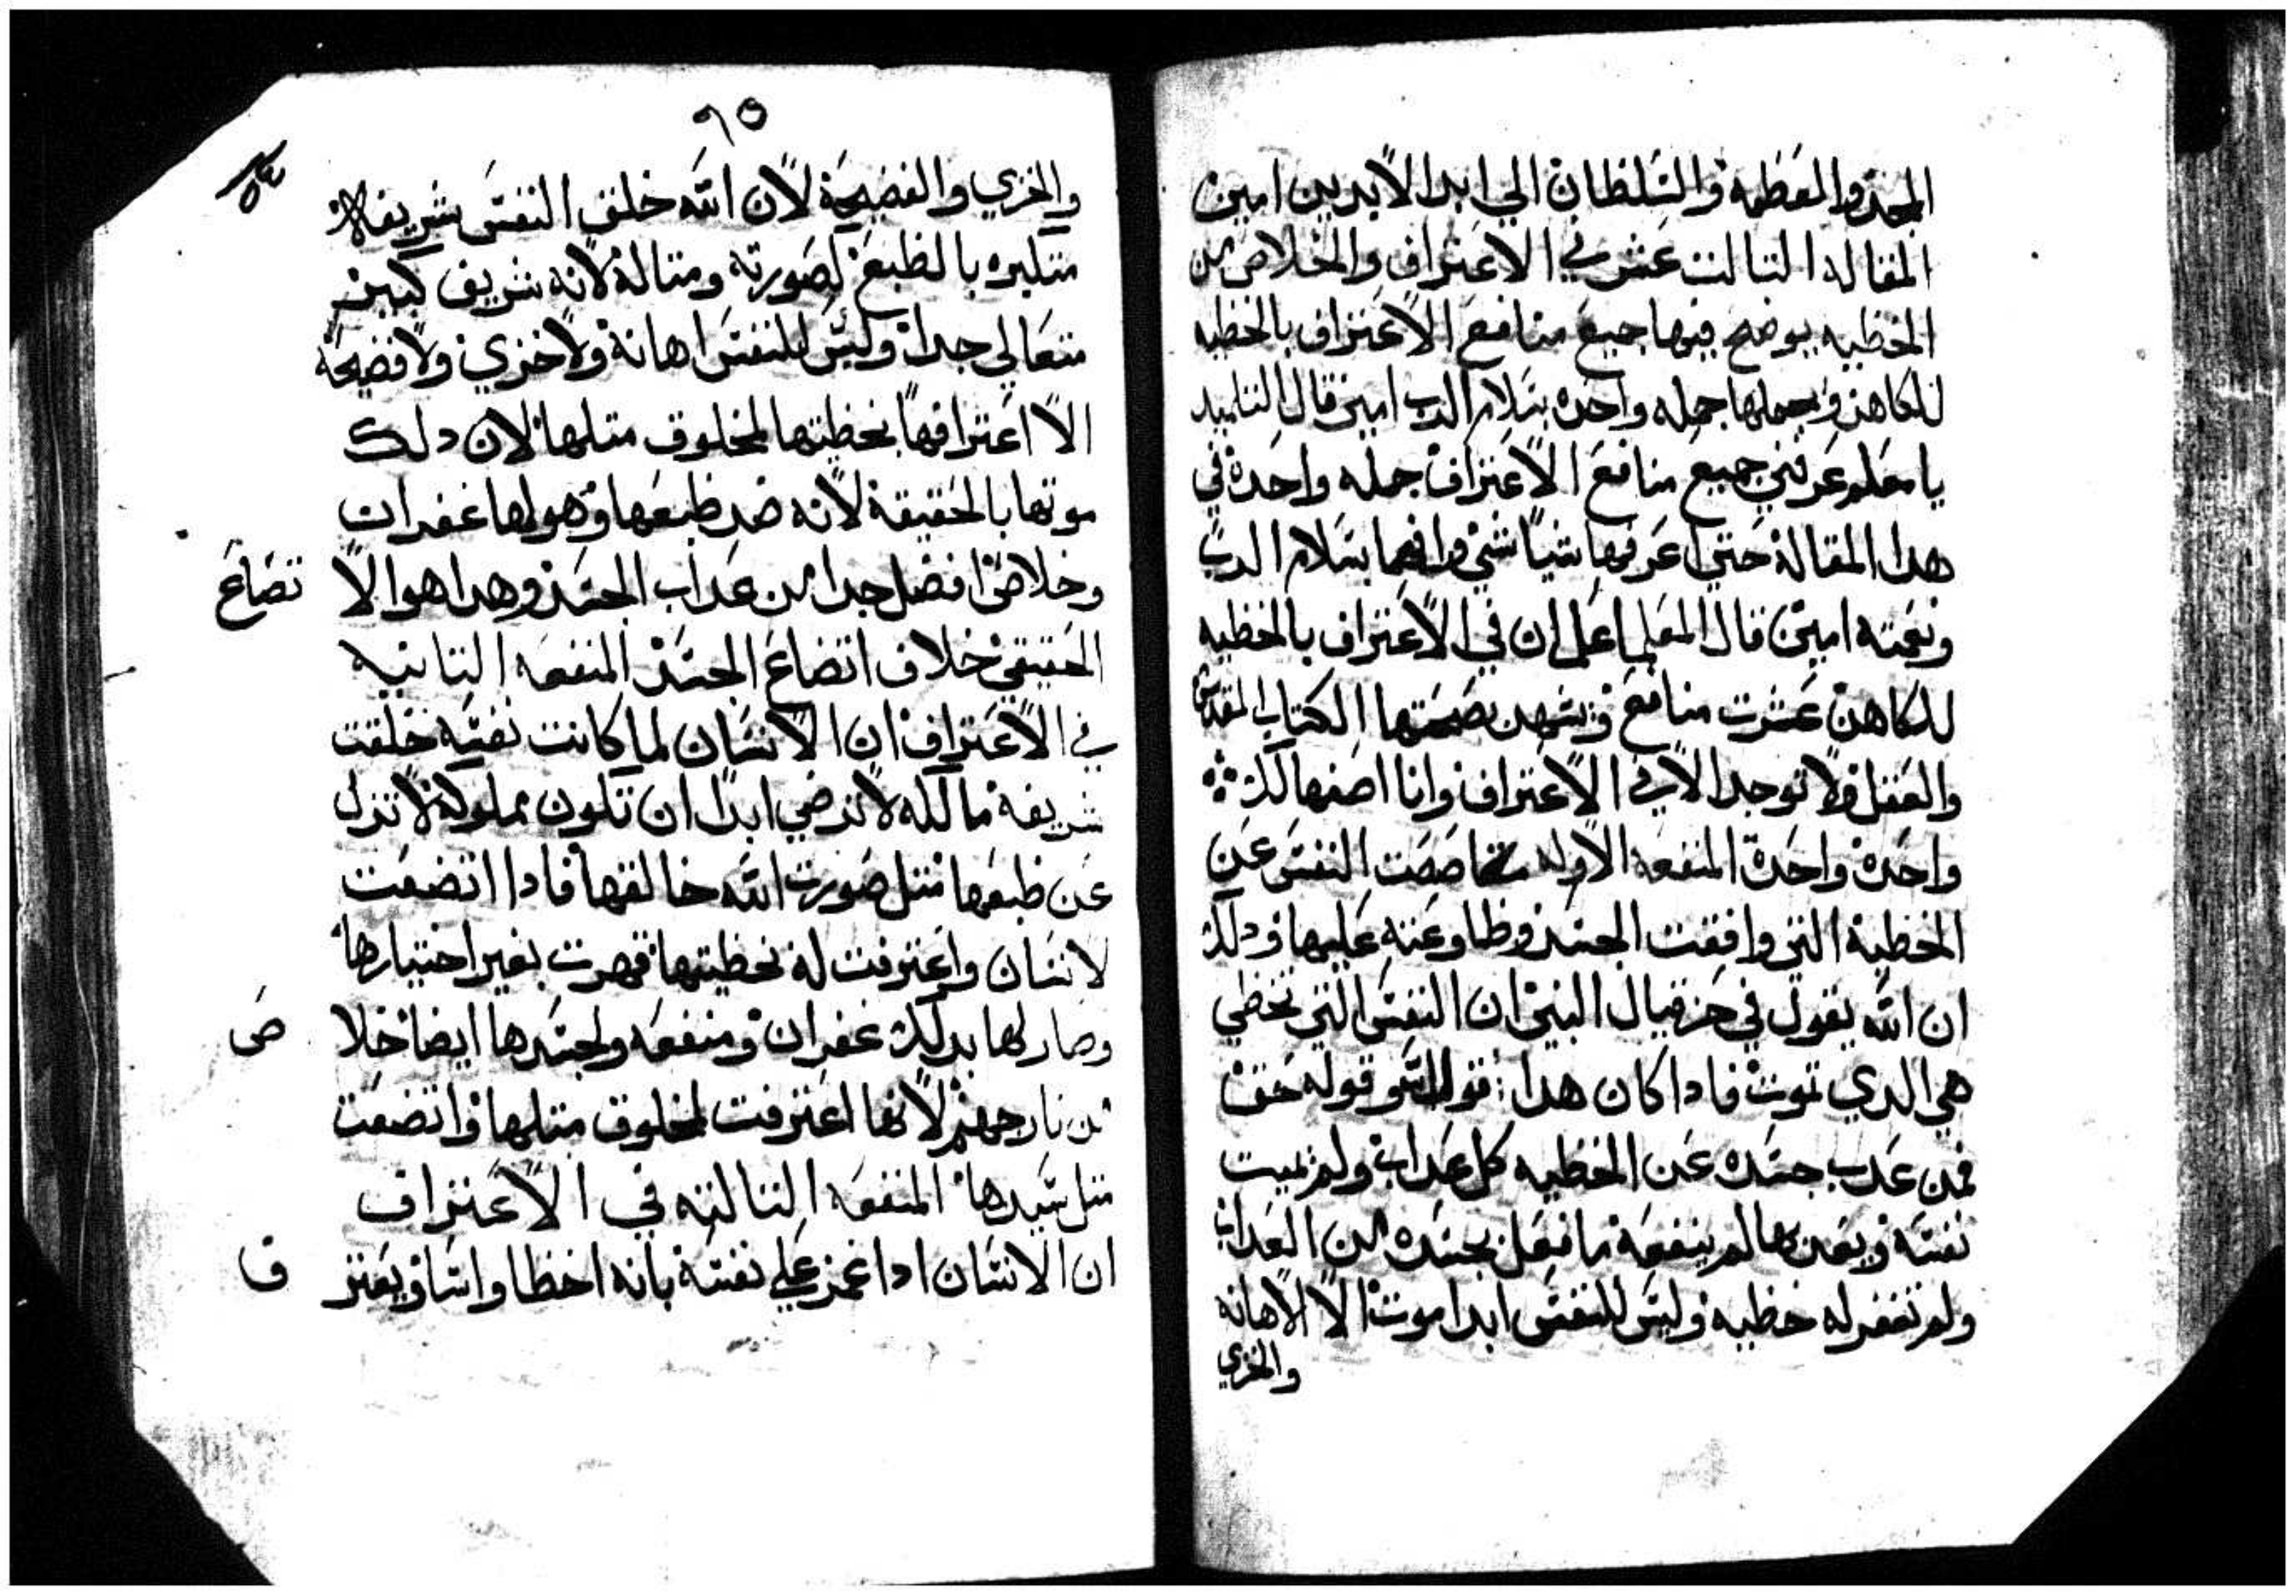 المجد والعظمه والسلطان الي ابد الابدين امين
المقاله التالت عشر في الاعتراف والخلاص من
الخطيه يوضح فيها جميع منافع الاعتراف بالخطيه
للكاهن وبجملها جمله واحده بسلام الرب امين قال التلميد
يا معلم عرفني جميع منافع الاعتراف جمله واحدة في
هدا المقالة حتي اعرفها شياً شي وافهما بسلام الرب
ونعمته امين قال المعلم اعلم ان في الاعتراف بالخطيه
للكاهن عشرت منافع وتشهد بصحتها الكتاب المقدس
والعقل ولا توجد الا في الاعتراف وانا اصفها لك
واحدة واحدة المنفعه الاوله قصاصت النفس عن
الخطية التي وافقت الجسد وطاوعته عليها ودلك
ان الله يقول في حزقيال النبي ان النفس التي تخطي
هي الدي تموت فادا كان هدا قول الله وقوله حق
فمن عدب جسده عن الخطيه كل عداب ولم يميت
نفسه ويعدبها لم ينفعة ما فعل بجسده من العداب
ولم تغفر له خطيه وليس للنفس ابدا موت الا الاهانه
والخزي
٦٥
٥٤
والخزي والفضيحة لان الله خلق النفس شريفه
متكبره بالطبع لصورته ومتالة لانه شريف كبير
متعالي جدا وليس للنفس اهانة ولا خزي ولا فضيحة
الا اعترافها بخطيتها لمخلوق متلها لان دلك
موتها بالحقيقة لانه ضد طبعها وهو لها غفران
وخلاص افضل جدا من عداب الجسد وهدا هو الا
تضاع
الحقيقي خلاف اتضاع الجسد المنفعه التانيه
في الاعتراف ان الانسان لما كانت نفسه خلقت
شريفة مالكه لا ترضي ابدا ان تكون مملوكة لا تنزل
عن طبعها متل صورت الله خالقها فادا اتضعت
لانسان واعترفت له بخطيتها قهرت بغير اختيارها
وصار لها بدلك غفران ومنفعه ولجسدها ايضا خلا
ص
من نار جهنم لانها اعترفت لمخلوق متلها واتضعت
متل سيدها المنفعه التالته في الاعتراف
ان الانسان ادا غمز علي نفسة بانه اخطا واسا ويعتر
ف